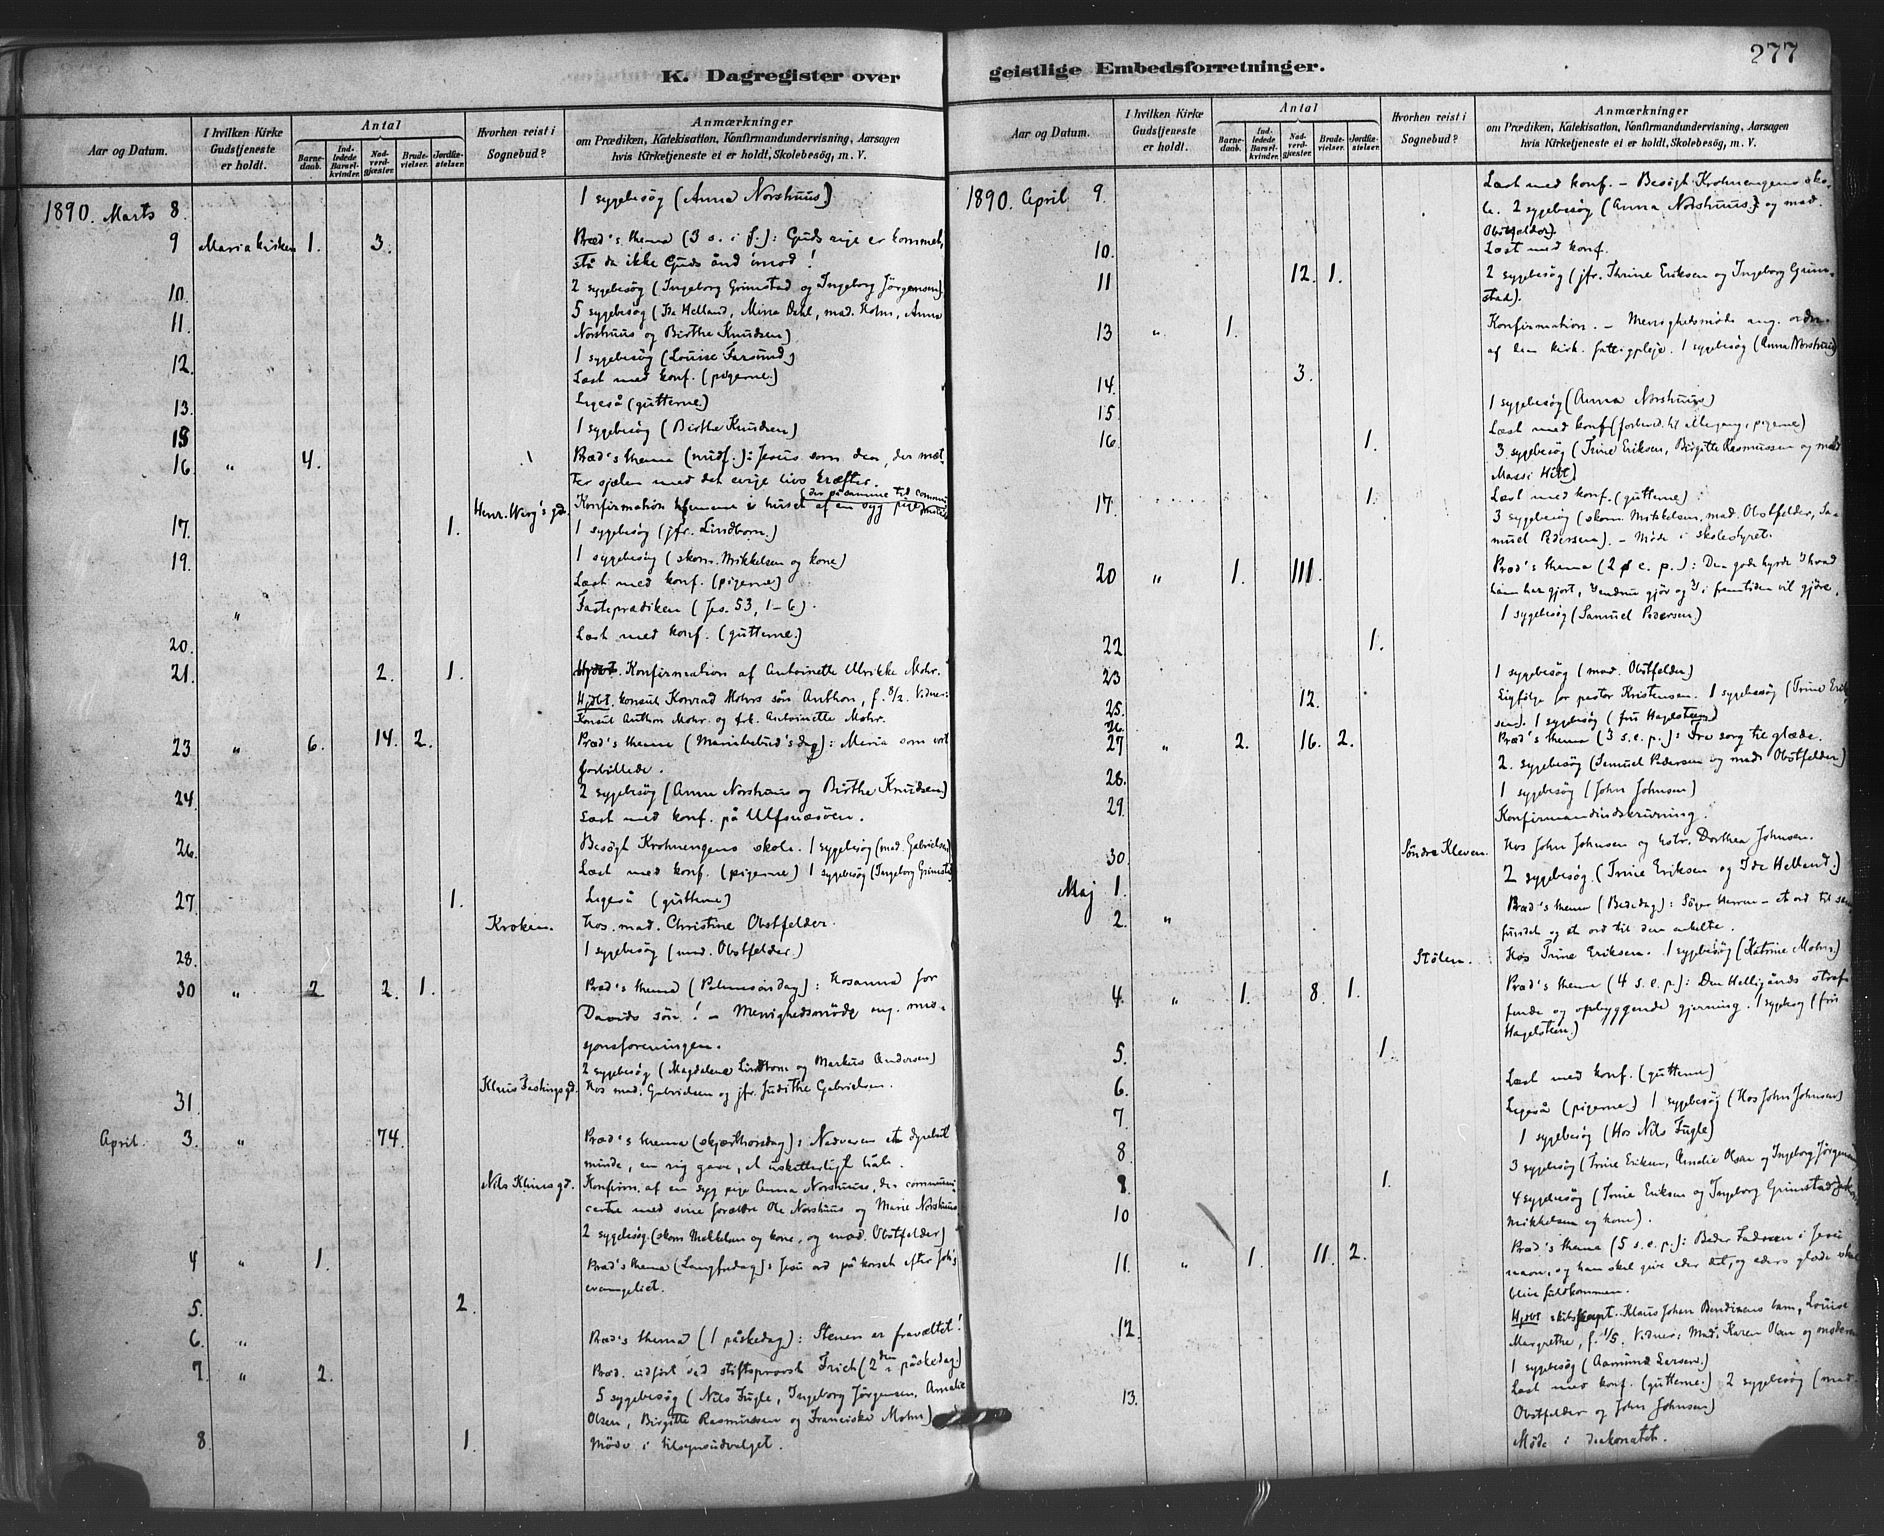 277
K. Dagregister over
Aar og Datum.
I hvilken Kirke Gudstjeneste er holdt.
Antal
Barnedaab.
Indledede Barselkvinder.
Nadverdgjæster.
Brudevielser.
Jordfæstelser.
Hvorhen reist i Sognebud?
Anmærkninger
om Prædiken, Katekisation, Konfirmandundervisning, Aarsagen
hvis Kirketjeneste ei er holdt, Skolebesøg, m. V.
1890. Marts 8. 1 sygebesög (Anna Norshuus)
9 Mariakirken 1. 3. Præd's thema (3 s. i f.): Guds rige er kommet,
stå da ikke Guds ånd imod!
10. 2 sygebesög (Ingeborg Grimstad og Ingeborg Jörgensen)
11. 5 sygebesög (Ida Helland, Mina Dahl, mad. Holm, Anna
Norshuus og Birthe Knudsen)
12. 1 sygebesög (Louise Farsund)
Læst med konf. (pigerne.)
13. Ligeså (gutterne.)
15 1 sygebesög (Birthe Knudsen)
16. " 4. Præd's thema (midf.): Jesus som den, der mæt-
ter sjælen med det evige livs kræfter.
Henr. Wergs gd. Konfirmation hjemme i huset af en syg pige (der på samme tid
17. 1. 1 sygebesög (jfr. Lindbom.)
19. 1 sygebesög (skom. Mikkelsen og kone)
Læst med konf. (pigerne)
" Fasteprædiken (Jes. 53, 1-6).
20. Læst med konf. (gutterne.)
21. 2. 1. Konfirmation af Antoinette Ulrikke Mohr.
Hjdbt. konsul Konrad Mohrs sön Anthon, f. 8/2. Vidner:
Konsul Anthon Mohr og frk. Antoinette Mohr.
23 " 6. 14. 2. Præd's thema (Mariæbud'sdag): Maria som vort
forbillede.
24. 2 sygebesög (Anna Norshuus og Birthe Knudsen)
Læst med konf. på Ulfsnesöen.
26. Besögt Krohnengens skole. 1 sygebesög (mad. Gabrielsen)
Læst med konf. (pigerne) 1 sygebesög (Ingeborg Grimstad)
27. 1. Ligeså (gutterne)
Kroken. Hos mad. Christine Obstfelder.
28. 1 sygebesög (mad. Obstfelder.)
30 " 2 2. 1. Præd's thema (Palmesöndag): Hosanna for
Davids sön! – Menighedsmöde ang. mis-
sjonsforeningen.
2 sygebesög (Magdalena Lindbom og Markus Andersen)
31. Klaus Fastings gd. Hos mad. Gabrielsen og jfr. Judithe Gabrielsen.
April. 3. " 74. Præd's thema (skjærthorsdag): Nadveren et dyrebart
minde, en rig gave, et håb.
Nils Klims gd. Konfirm. af en syg pige Anna Norshuus, der communi-
certe med sine forældre Ole Norshuus og Marie Norshuus
2 sygebesög. (skom Mikkelsen og kone, og mad. Obstfelder)
4 " 1. Præd's thema (Langfredag): Jesu ord på korset efter Joh's
evangeliet.
5. 2.
6. " Præd's thema (1 påskedag): Stenen er fravæltet!
7. " 2. Præd. udfört ved stiftsprovst Irich (2den påskedag.)
5 sygebesög (Nils Fugle, Ingeborg Jörgensen, Amalie
Olsen, Birgitte Rasmussen og Franciska Mohn)
8. 1. Möde i tilsynsudvalget.
geistlige Embedsforretninger.
Aar og Datum.
I hvilken Kirke Gudstjeneste er holdt.
Antal
Barnedaab.
Indledede Barselkvinder.
Nadverdgjæster.
Brudevielser.
Jordfæstelser.
Hvorhen reist i Sognebud?
Anmærkninger
om Prædiken, Katekisation, Konfirmandundervisning, Aarsagen
hvis Kirketjeneste ei er holdt, Skolebesøg, m. V.
1890. April 9. Læst med konf. – Besögt Krohnengens sko-
le. 2 sygebesög (Anna Norshuus og mad.
Obstfelder).
10. Læst med konf.
11 12. 1. 2 sygebesög (jfr. Thrine Eriksen og Ingeborg Grim-
stad).
13 " 1. Konfirmation. – Menighedsmöde ang.
af den kirk. fattigpleje. 1 sygebesög (Anna Norshuus)
14. 3.
1 sygebesög (Anna Norshuus)
15. Læst med konf (forbered. til altergang, pigerne)
16. 1. 3 sygebesög (Trine Eriksen, Birgitte Rasmussen og mad
Massi Hitt)
17. 1. Læst med konf. (gutterne)
3 sygebesög (skom. Mikkelsen, mad. Obstfelder, Sa-
muel Pedersen). – Möde i skolestyret.
20 " 1. 111. Præd's thema (2 s e. p.): Den gode hyrde I hvad
han har gjort, gjör og I i fremtiden vil gjöre.
1 sygebesög (Samuel Pedersen.)
22 1.
23 1 sygebesög (mad. Obstfelder)
25. 12. Ligfölge for pastor Kristensen. 1 sygebesög (Trine Erik-
sen). 1 sygebesög (fru Hagelsteen)
26.
27 " 2. 16. 2. Præd's thema (3 s. e. p.): Fra sorg til glæde.
2. sygebesög (Samuel Pedersen og mad. Obstfelder)
28. 1 sygebesög (John Johnsen)
29. Konfirmandindskrivning.
30 Söndre Kleven. Hos John Johnsen og Dorthea Johnsen.
Maj 1. 2 sygebesög. (Trine Eriksen og Ida Helland.)
2. " Præd's thema (Bededag): Söger Herren – et ord til sam-
fundet og et ord til den enkelte.
Stölen. Hos Trine Eriksen. 1 sygebesög (Katrine Mohn.)
4. " 1. 8. 1. Præd's thema (4 s. e. p.): Den Helligånds straf-
fende og opbyggende gjerning. 1 sygebesög (fru
Hagelsteen.)
5. 1.
6. Læst med konf. (gutterne)
7. Ligeså (pigerne) 1 sygebesög (Hos John Johnsen)
8. 1 sygebesög (Hos Nils Fugle)
9. 1. 3 sygebesög (Trine Eriksen, Amalie Olsen og Ingeborg Jörgensen)
10 4 sygebesög (Trine Eriksen og Ingeborg Grimstad,
Mikkelsen og kone).
11. " 1. 11. 2. Præd's thema (5 s. e. p.): Beder Faderen i Jesu
navn, og han skal give eder det, og eders glæde skal
blive fuldkommen.
12. Hjdbt Klaus Johan Bendixens barn, Louise
Margrethe, f. 1/5. Vidner: Mad. Karen Olsen og moderen
1 sygebesög (Aamund Larsen.)
13. Læst med konf. (gutterne.) 2 sygebesög (mad.
Obstfelder og John Johnsen)
Möde i diakonatet.